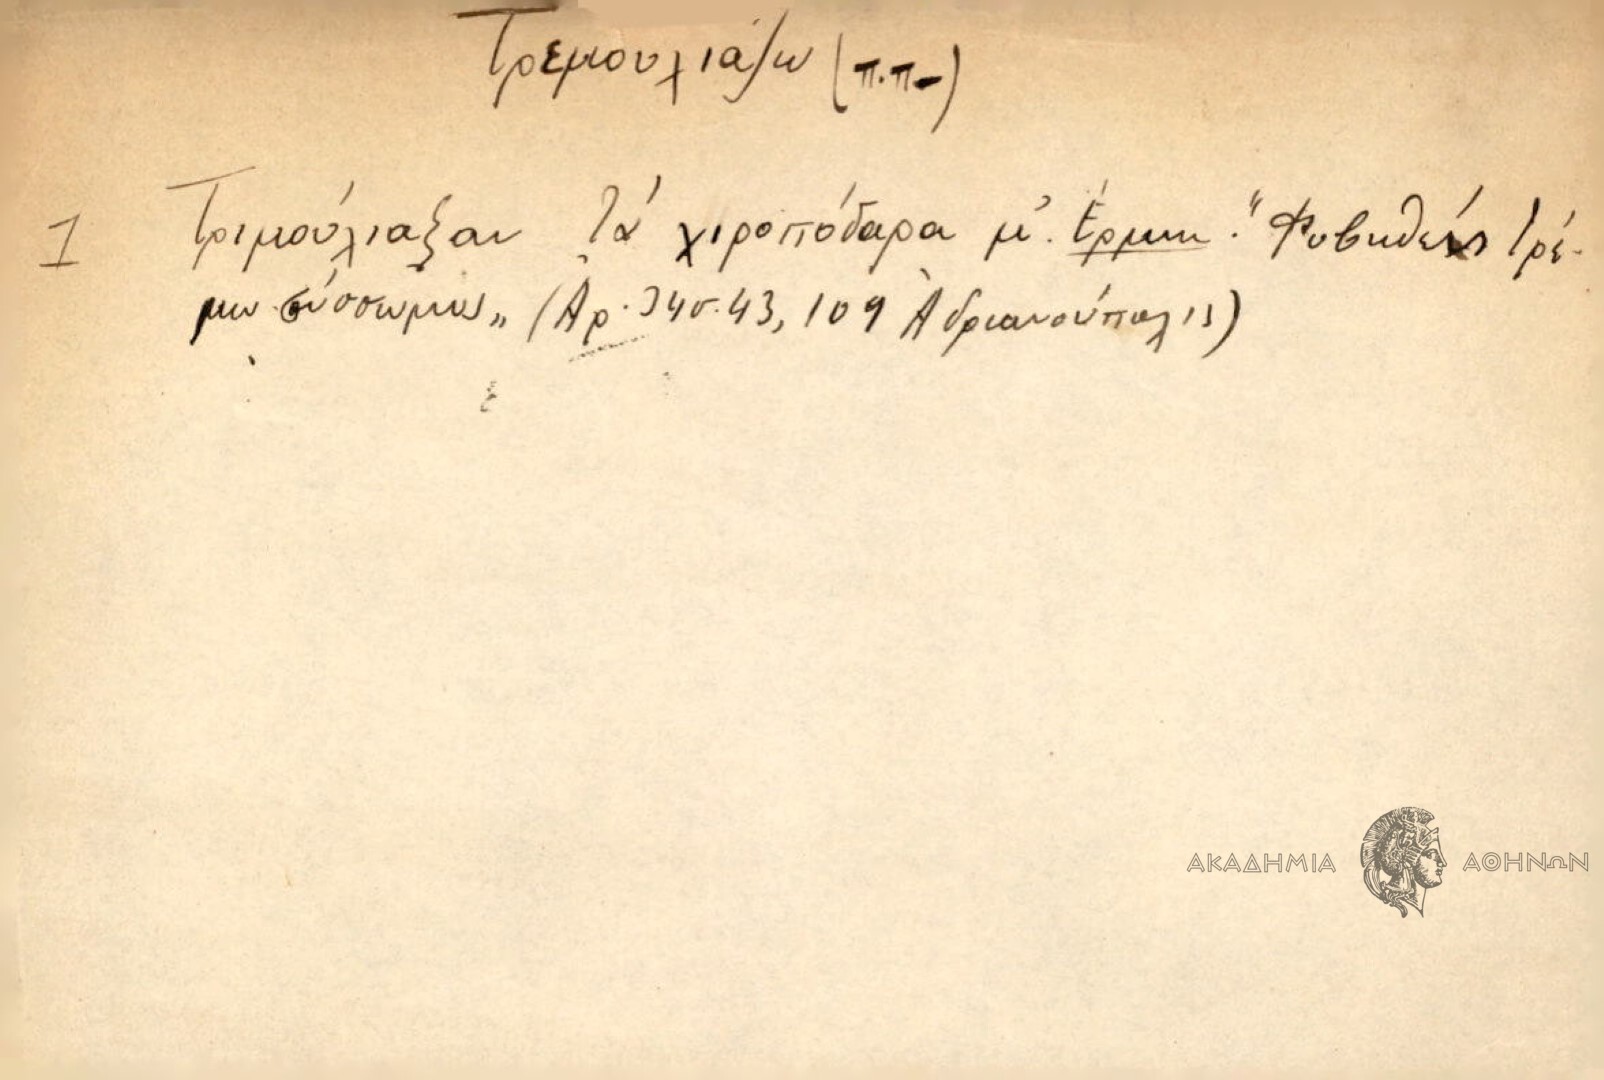 Τρεμουλιάζω (π.π-)
1 Τριμούλιαξαν τά χιροπόδαρα μ'. Ἑρμην. "Φοβηθείς τρέ-
μω σύσσωμος„ (Ἀρ. 34 σ. 43, 109 Ἀδριανούπολις)
ΑΚΑΔΗΜΙΑ ΑΘΗΝΩΝ